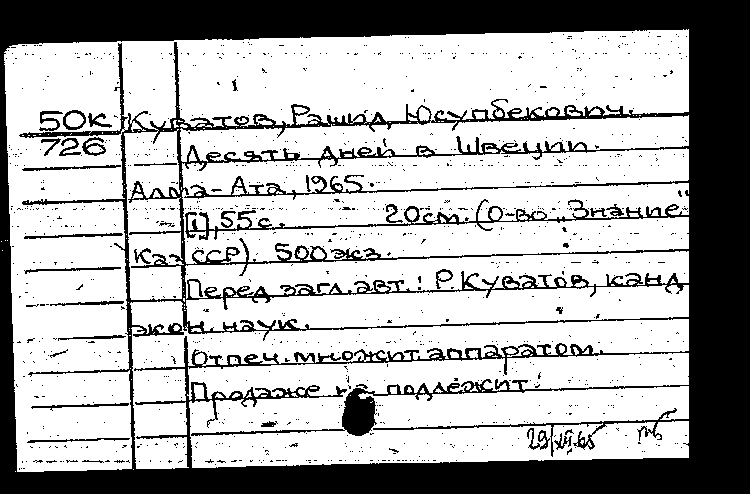 50К Куватов, Рашид Юсупбекович.
726
Десять дней в Швеции.
Алма-Ата, 1965.
[1], 55 с. 20 см. (О-во „Знание"
Каз ССР). 500 экз.
Перед загл. авт.: Р. Куватов, канд.
экон. наук.
Отпеч. множит. аппаратом.
Продаже не подлежит.
29/XII.65